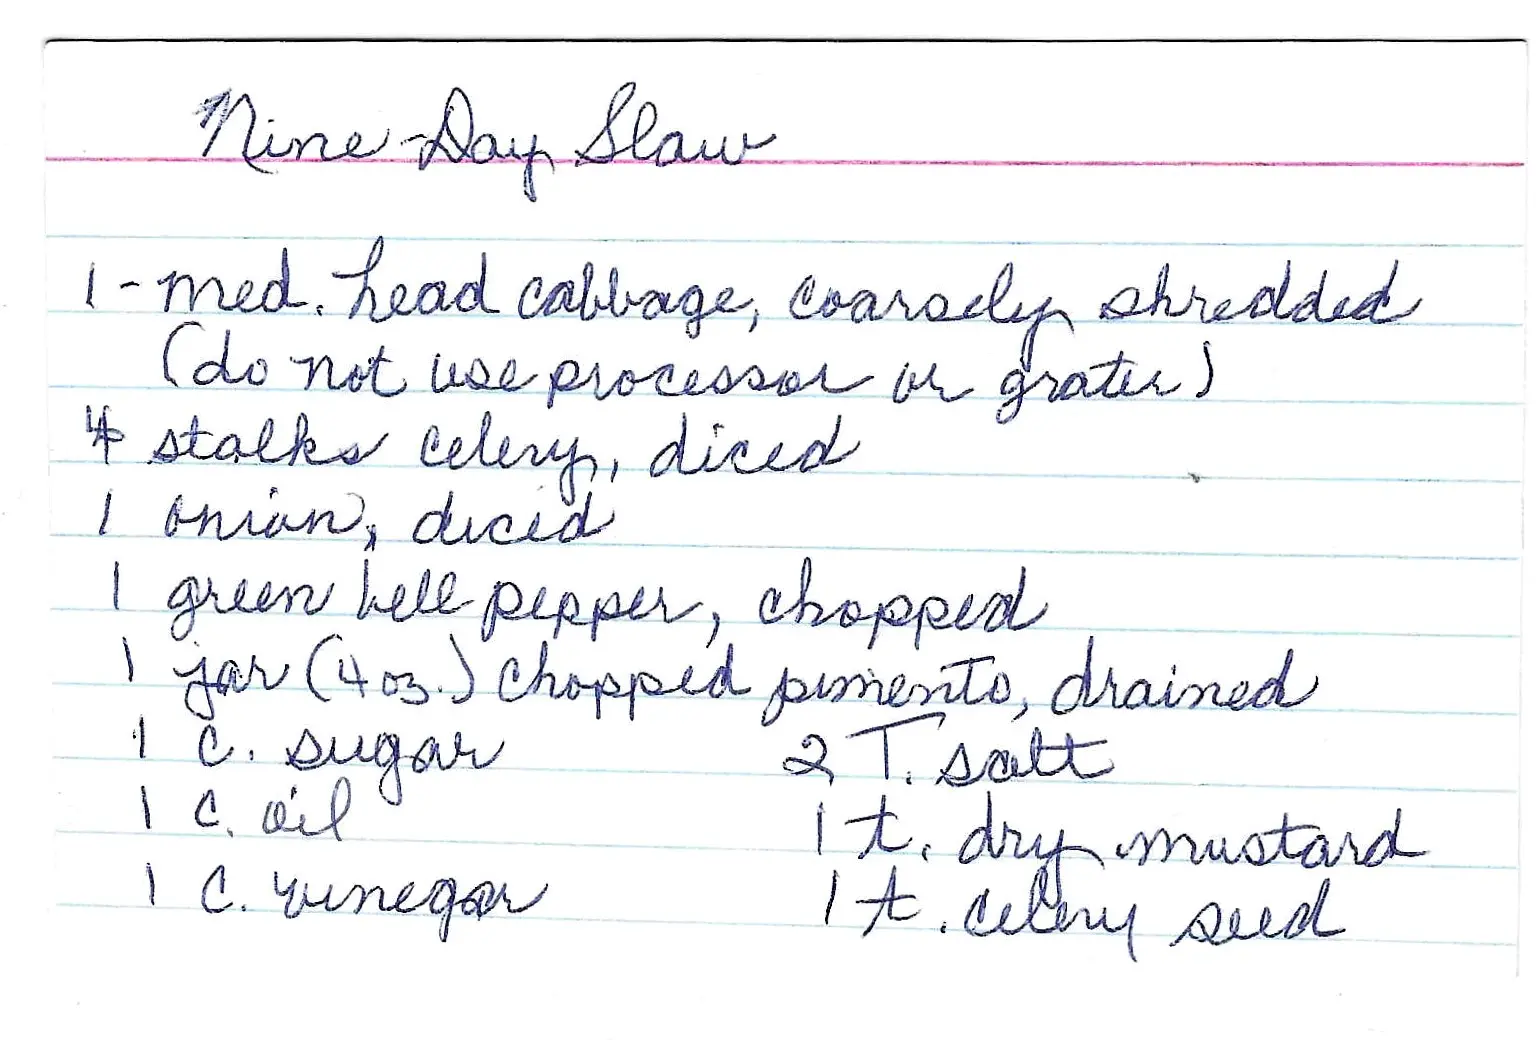 Nine-Day Slaw
1 - med. head cabbage, coarsely shredded
(do not use processor or grater)
4 stalks celery, diced
1 onion, diced
1 green bell pepper, chopped
1 jar (4 oz.) chopped pimento, drained
1 c. sugar 2 T. salt
1 c. oil 1 t. dry mustard
1 c. vinegar 1 t. celery seed